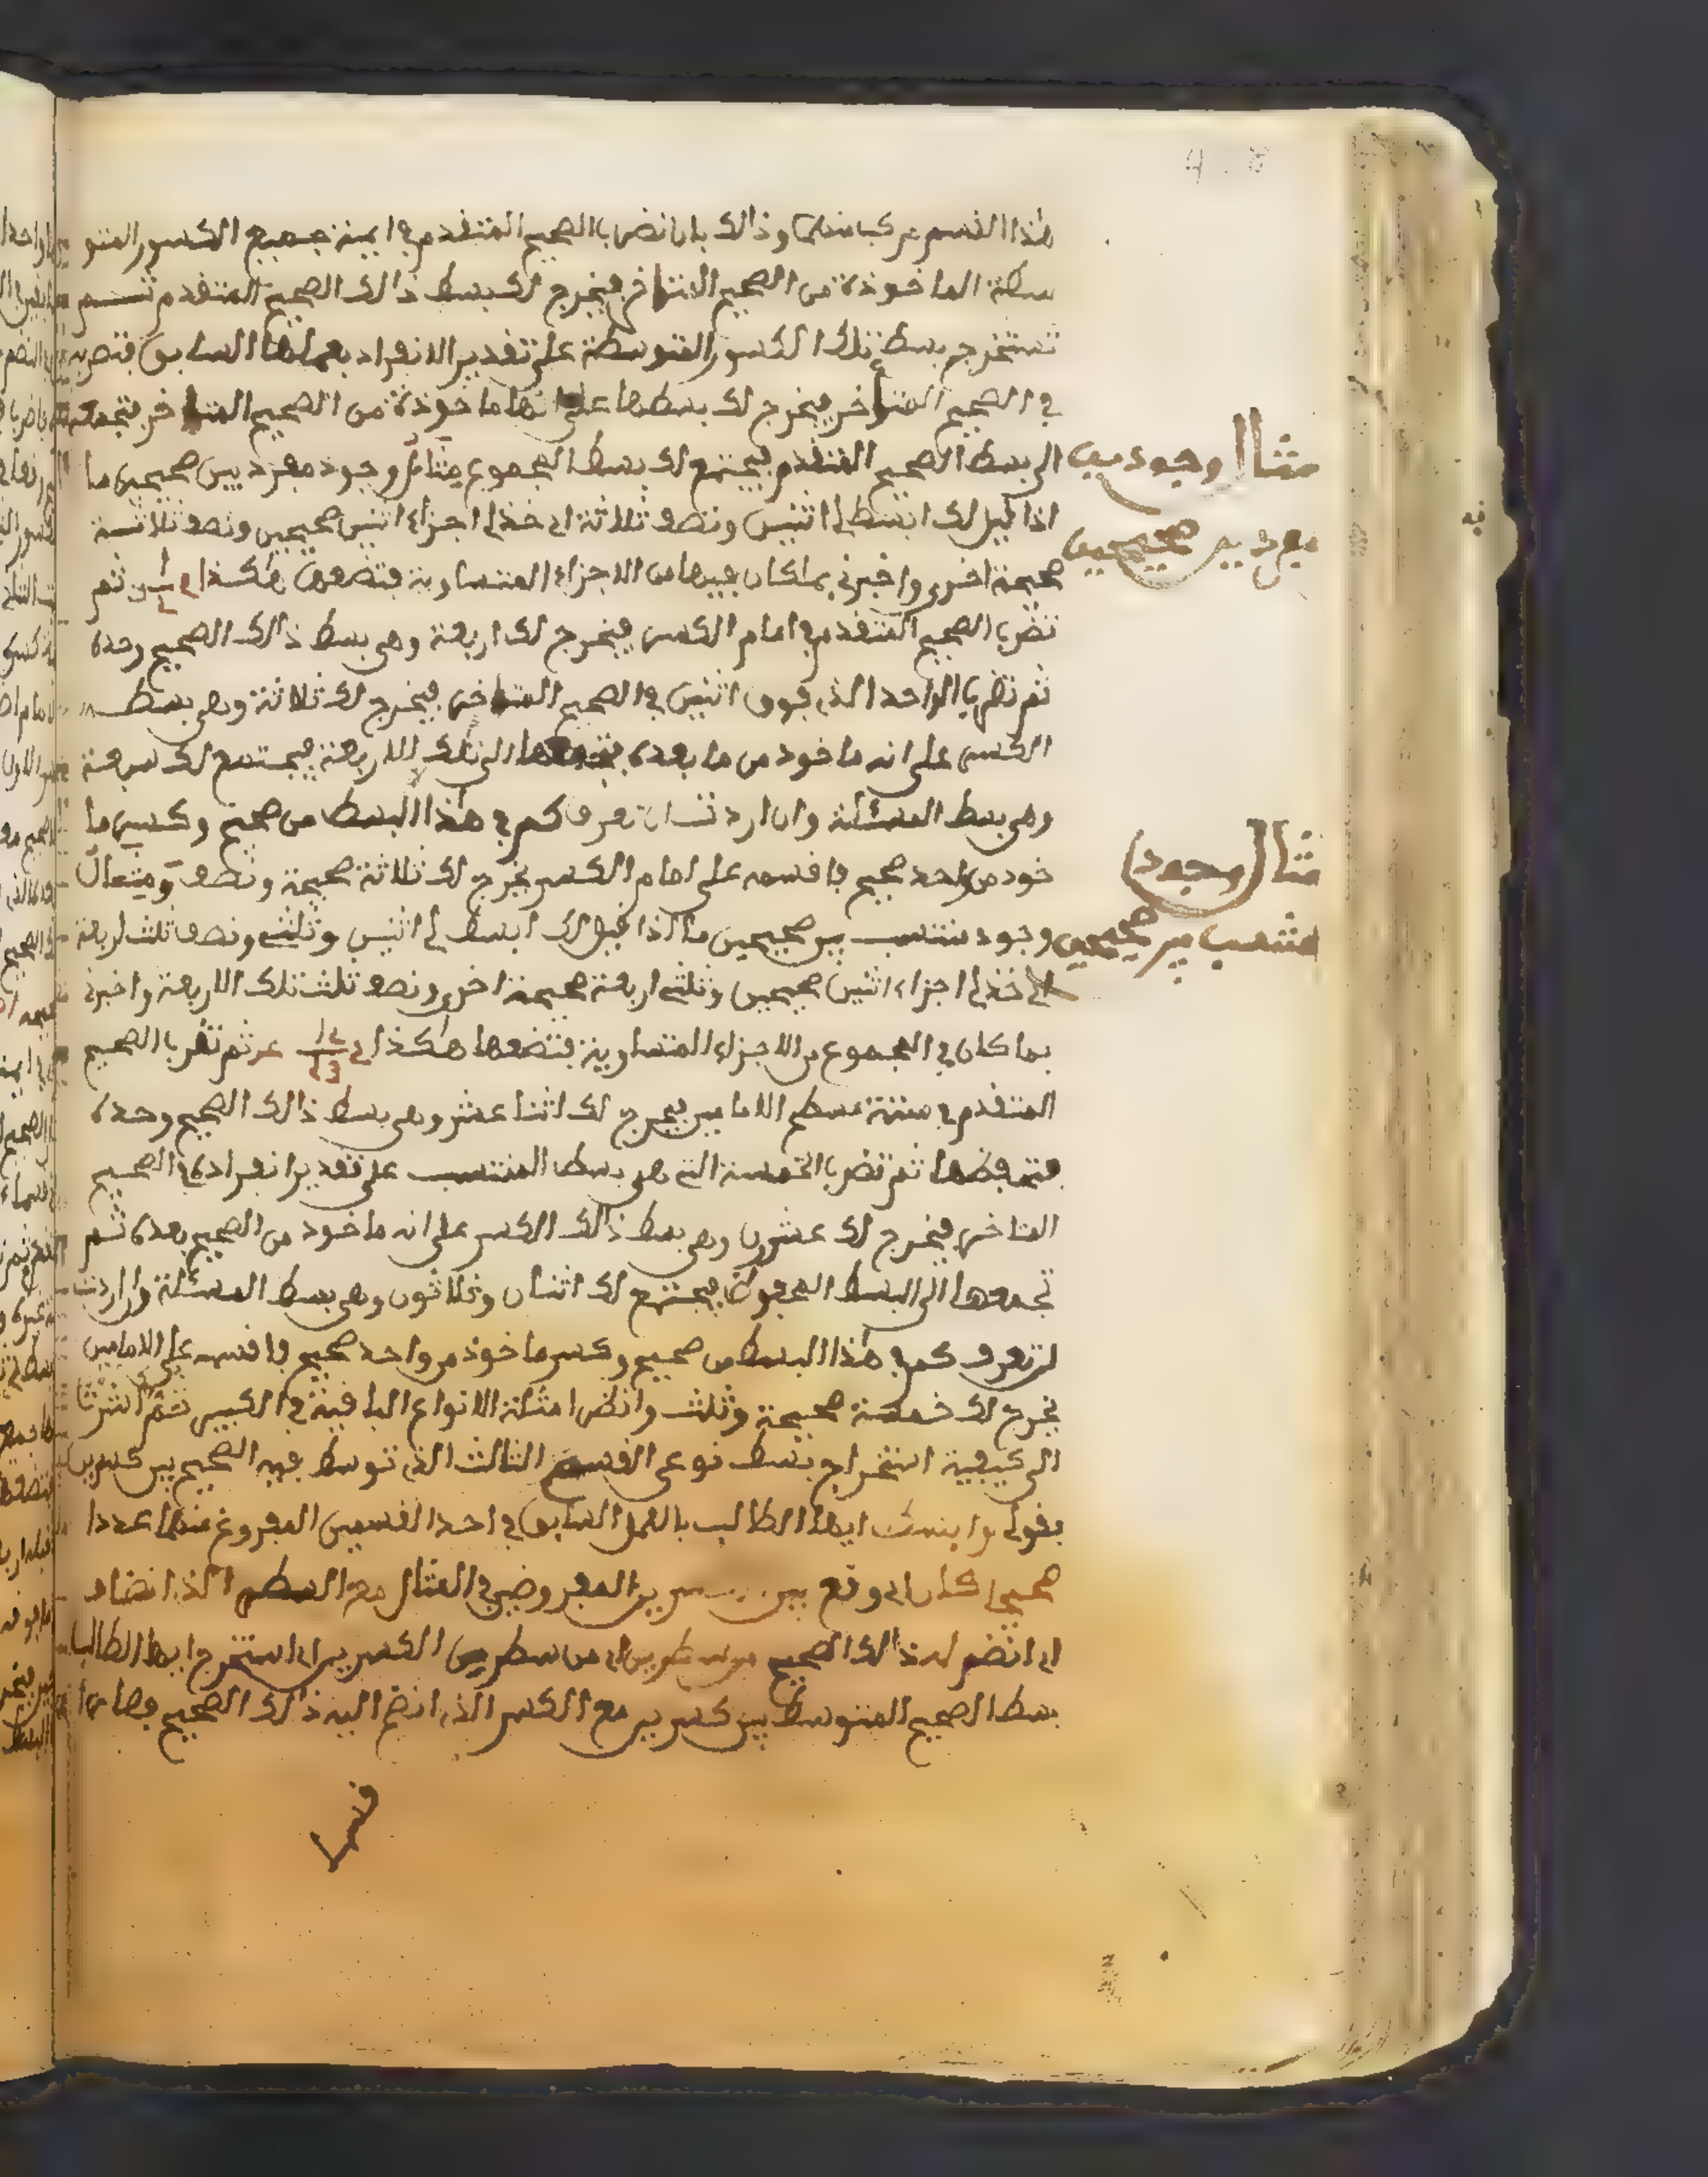 هذا القسم مركبا منهما وذالك بان تضرب الصحيح المتقدم في ايمة جميع الكسور المتو
سطة الماخوذة من الصحيح المتاخر فيخرج لك بسط ذالك الصحيح المتقدم ثم
تستخرج بسط تلك الكسور المتوسطة على تقدير الانفراد بعملها السابق فتضربه
في الصحيح المتاخر فيخرج لك بسطها على انها ماخوذة من الصحيح المتاخر فتجمعه
الى بسط الصحيح المتقدم فيجتمع لك بسط المجموع مثال وجود مفرد بين صحيحين ما
اذا قيل لك ابسط لي اثنين ونصف ثلاثة اي خذ لي اجزاء اثنين صحيحين ونصف ثلاثة
صحيحة اخرى واخبرني بما كان فيها من الاجزاء المتساوية فتضعها هكذا ثم
تضرب الصحيح المتقدم في امام الكسر فيخرج لك اربعة وهي بسط ذالك الصحيح وحده
ثم تضرب الواحد الذي فوق اثنين في الصحيح المتاخر فيخرج لك ثلاثة وهي بسط
الكسر على انه ماخوذ من ما بعده فتجمعها الى تلك الاربعة فيجتمع لك سبعة
وهي بسط المسئلة وان اردت ان تعرف كم في هذا البسط من صحيح وكسر ما
خوذ من واحد صحيح فاقسمه على امام الكسر يخرج لك ثلاثة صحيحة ونصف ومثال
وجود منتسب بين صحيحين ما اذا قيل لك ابسط لي اثنين وثلثي ونصف ثلث اربعة
اي خذ لي اجزاء اثنين صحيحين وثلثي اربعة صحيحة اخرى ونصف ثلث تلك الاربعة واخبرني
بما كان في المجموع من الاجزاء المتساوية فتضعها هكذا ثم تضرب الصحيح
المتقدم في ستة مسطح الامامين يخرج لك اثنا عشر وهي بسط ذالك الصحيح وحده
فتحفظها ثم تضرب الخمسة التي هي بسط المنتسب على تقدير انفراده في الصحيح
المتاخر فيخرج لك عشرون وهي بسط ذالك الكسر على انه ماخوذ من الصحيح بعده ثم
تجمعها الى البسط المحفوظ فيجتمع لك اثنان وثلاثون وهي بسط المسئلة وان اردت
ان تعرف كم في هذا البسط من صحيح وكسر ماخوذ من واحد صحيح فاقسمه على الامامين
يخرج لك خمسة صحيحة وثلث وانظر امثلة الانواع الباقية في الكبير ثم اشرنا
الى كيفية استخراج بسط نوعي القسم الثالث الذي توسط فيه الصحيح بين كسرين
بقولي وابسط ايها الطالب بالعمل السابق في احد القسمين المفروغ منهما عددا
صحيحا كان اي وقع بين المفروضين في المثال مع السطر الذي انضاف
اي انضم له ذالك الصحيح من سطرين اي من سطرين الكسرين اي استخرج ايها الطالب
بسط الصحيح المتوسط بين كسرين مع الكسر الذي انضم اليه ذالك الصحيح
مثال وجود
مفرد بين صحيحين
مثال وجود
منتسب بين صحيحين